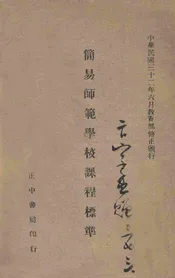 中華民國三十一年六月教育部修正頒行
簡易師範學校課程標準
正中書局印行